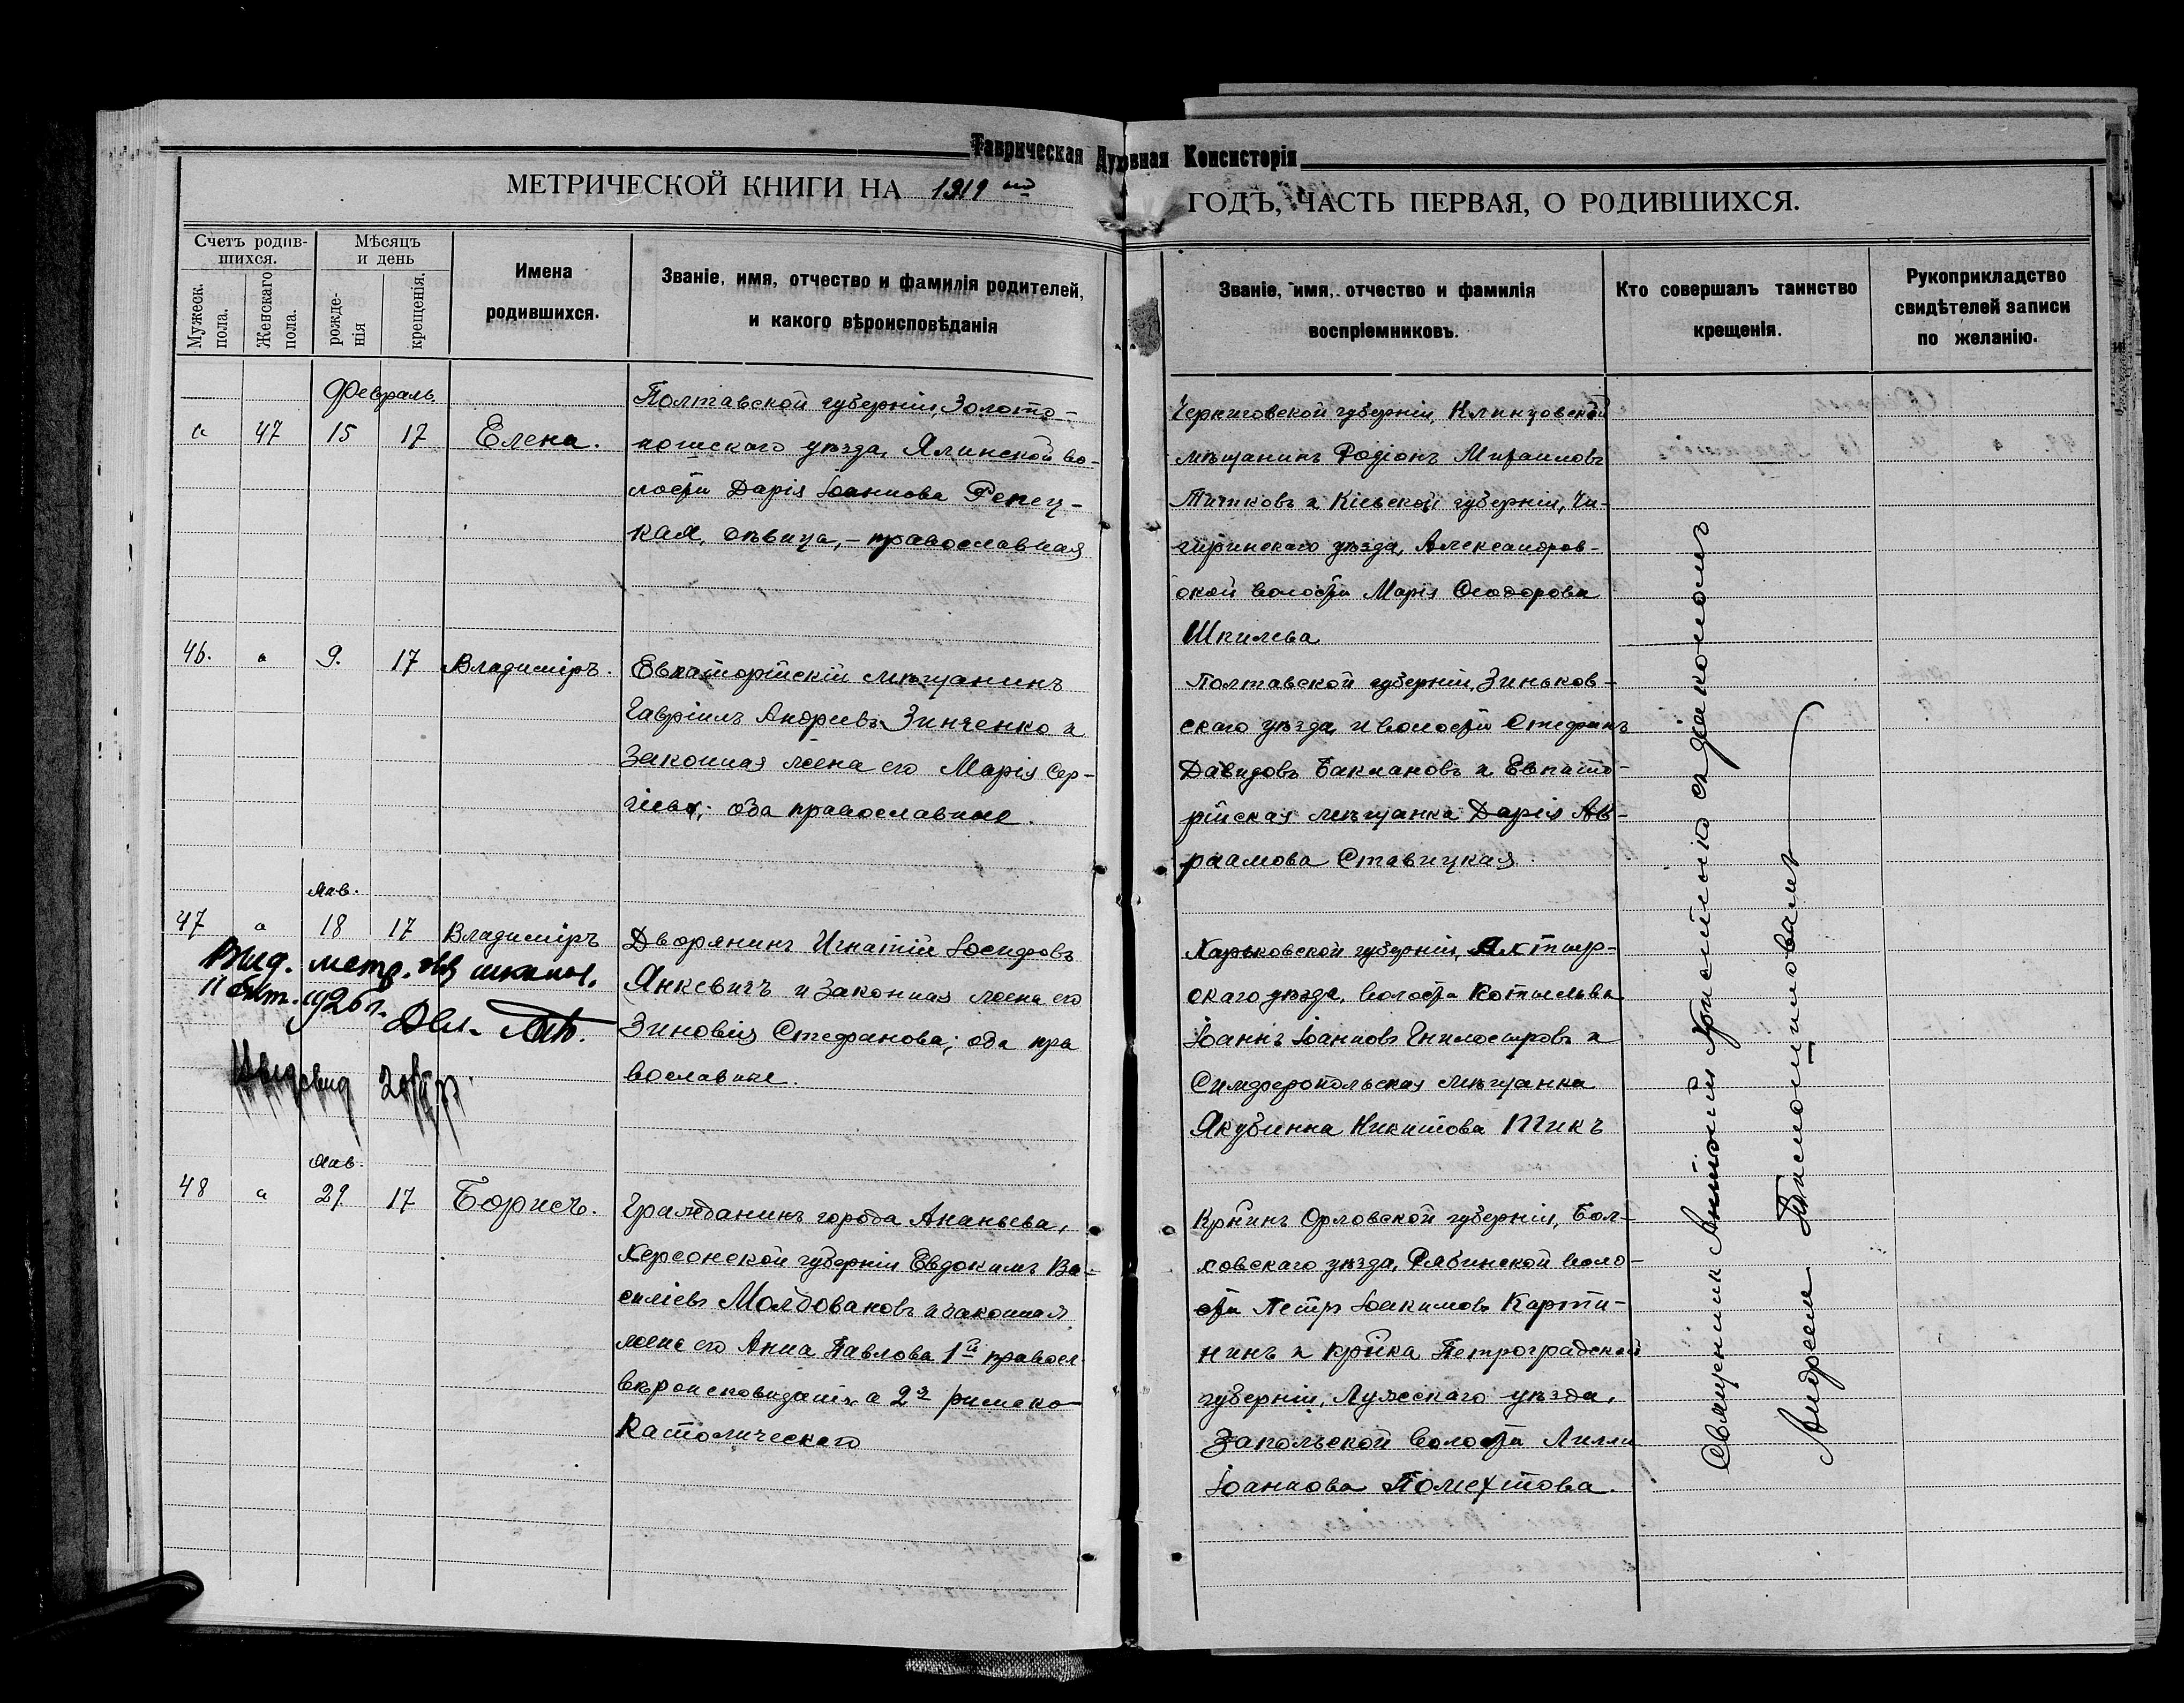 Таврическая Духовная Консисторія
МЕТРИЧЕСКОЙ КНИГИ НА 1919 ый ГОДЪ, ЧАСТЬ ПЕРВАЯ, О РОДИВШИХСЯ.
Счетъ родив-
шихся.
Мужеск.
пола.
Женскаго
пола.
Мѣсяцъ
и день
рожде-
нія
крещенія.
Имена
родившихся.
Званіе, имя, отчество и фамилія родителей,
и какого вѣроисповѣданія
Званіе, имя, отчество и фамилія
воспріемниковъ.
Кто совершалъ таинство
крещенія.
Рукоприкладство
свидѣтелей записи
по желанію.
Февраль
а 47 15 17 Елена.
Полтавской губерніи, Золото-
ношскаго уѣзда, Ялинской во-
лости Дарія Іоаннова Репец-
кая, дѣвица, - православная
Черниговской губерніи, Клинцовской
мѣщанинъ Родіонъ Михаиловъ
и Кіевской губерніи, Чи-
гиринскаго уѣзда, Александров-
ской волости Марія Ѳеодорова
Шпилева
46. а 9. 17 Владиміръ.
Евпаторійскій мѣщанинъ
Гавріилъ Андреевъ Зинченко и
законная жена его Марія Сер-
гіева; оба православные.
Полтавской губерніи, Зиньков-
скаго уѣзда, и волости Стефанъ
Давидовъ Бакмановъ и Евпато-
рійская мѣщанка Дарія Ав-
раамова Ставицкая.
Янв.
47 а 18 17 Владиміръ
Выд. метр. 
11 окт. 1926 г.
Дворянинъ Игнатій Іосифовъ
Янкевичъ и законная жена его
Зиновія Стефанова; оба пра
вославные.
Харьковской губерніи, Ахтыр-
скаго уѣзда, волости Котельва
Іоаннъ Іоанновъ Гнилосыровъ и
Симферопольская мѣщанка
Якубинна Никитова Тикъ
Янв.
48 а 29 17 Борисъ.
Гражданинъ города Ананьева,
Херсонской губерніи Евдокимъ Ва-
силіевъ Молдовановъ и законная
жена его Анна Павлова 1й правосл.
вѣроисповѣданія, а 2я римско-
католическаго
Кр-нинъ Орловской губерніи, Бол-
ховскаго уѣзда, Рябинской воло-
сти Петръ Іоакимовъ Карти-
нинъ и кр-нка Петроградской
губерніи, Лужскаго уѣзда,
Запольской волости Лилли
Іоаннова
Священник Антоній съ діакономъ
Андреемъ